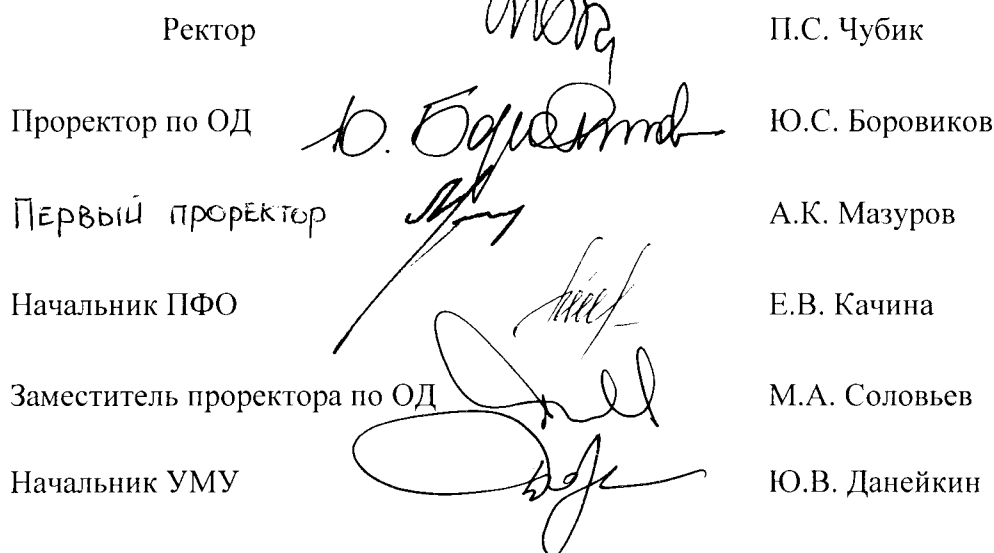 Ректор П.С. Чубик
Проректор по ОД Ю. Боровиков Ю.С. Боровиков
Первый проректор А.К. Мазуров
Начальник ПФО Е.В. Качина
Заместитель проректора по ОД М.А. Соловьев
Начальник УМУ Ю.В. Данейкин